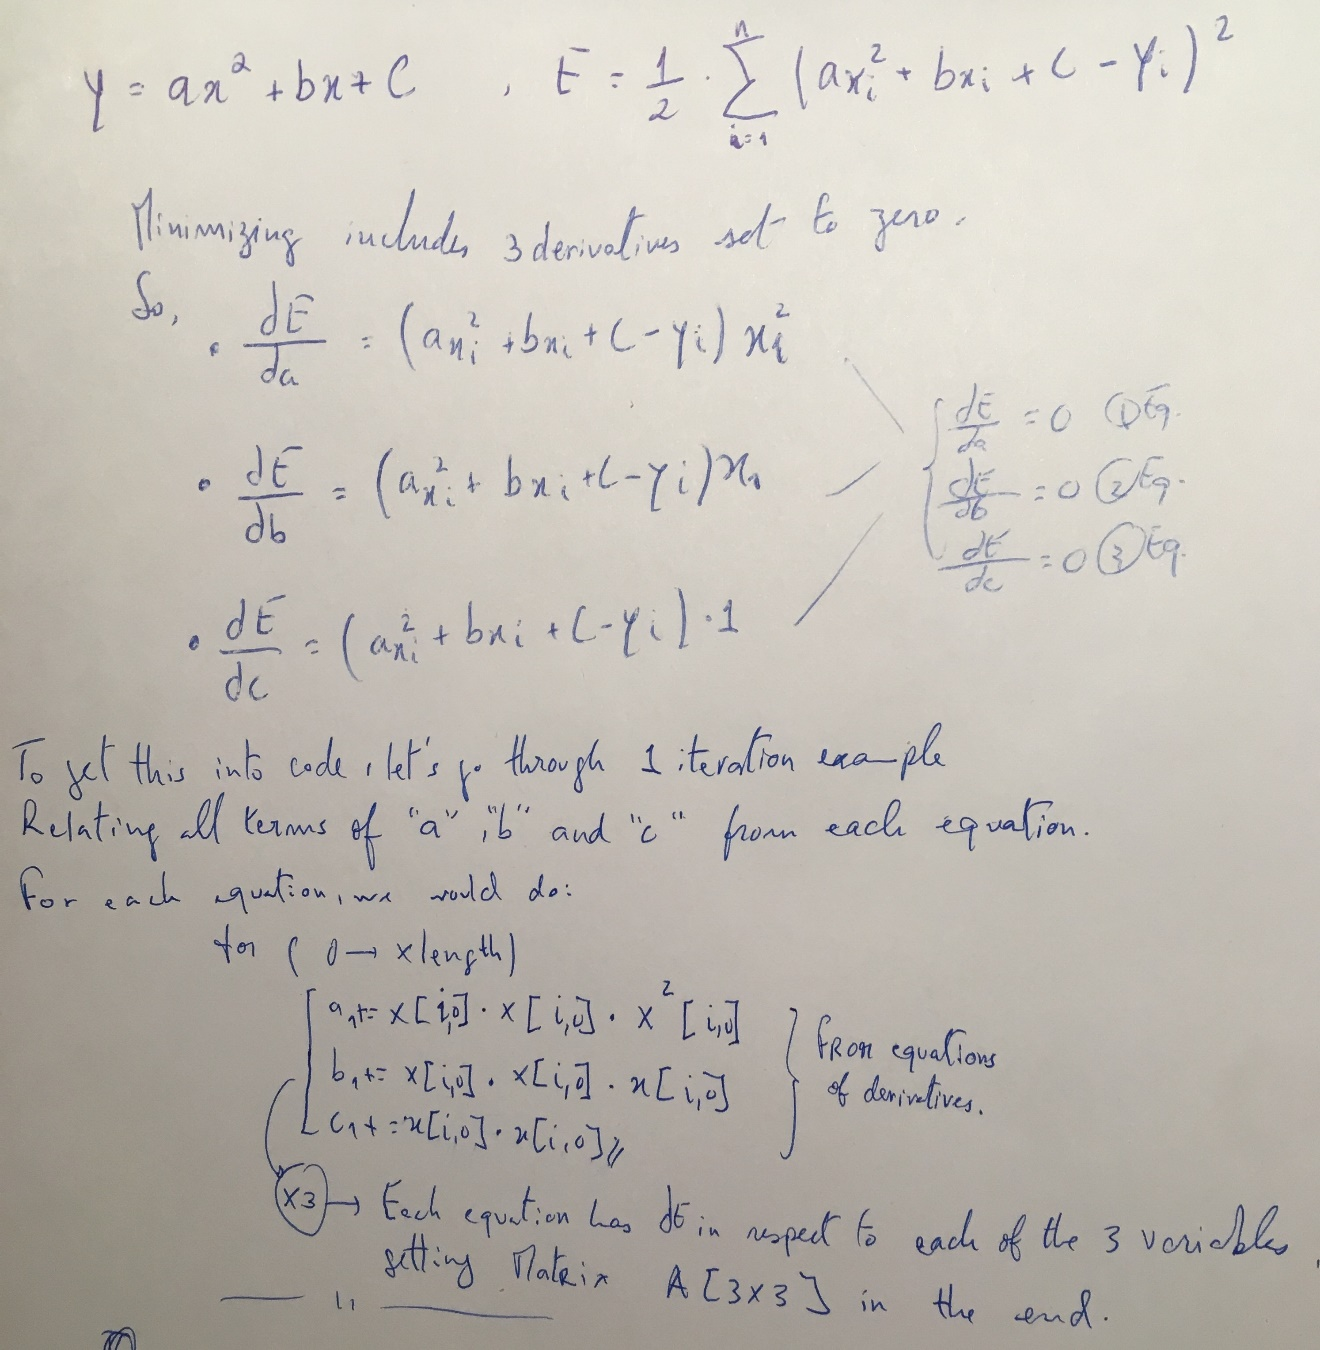 y = ax² + bx + c , E = 1/2 · Σ_{i=1}^{n} (ax_i² + bx_i + c - y_i)²
Minimizing includes 3 derivatives set to zero.
So,
• dE/da = (ax_i² + bx_i + c - y_i) x_i²
• dE/db = (ax_i² + bx_i + c - y_i) x_i
• dE/dc = (ax_i² + bx_i + c - y_i) · 1
{ dE/da = 0 ① Eq.
dE/db = 0 ② Eq.
dE/dc = 0 ③ Eq.
To get this into code, let's go through 1 iteration example
Relating all terms of "a", "b" and "c" from each equation.
For each equation, we would do:
for ( 0 → x length)
a₁ += x[i,0] · x[i,0] · x²[i,0]
b₁ += x[i,0] · x[i,0] · x[i,0]
c₁ += x[i,0] · x[i,0] //
} FROM equations
of derivatives.
x3 → Each equation has dE in respect to each of the 3 variables,
setting Matrix A [3x3] in the end.
—— 11 ——